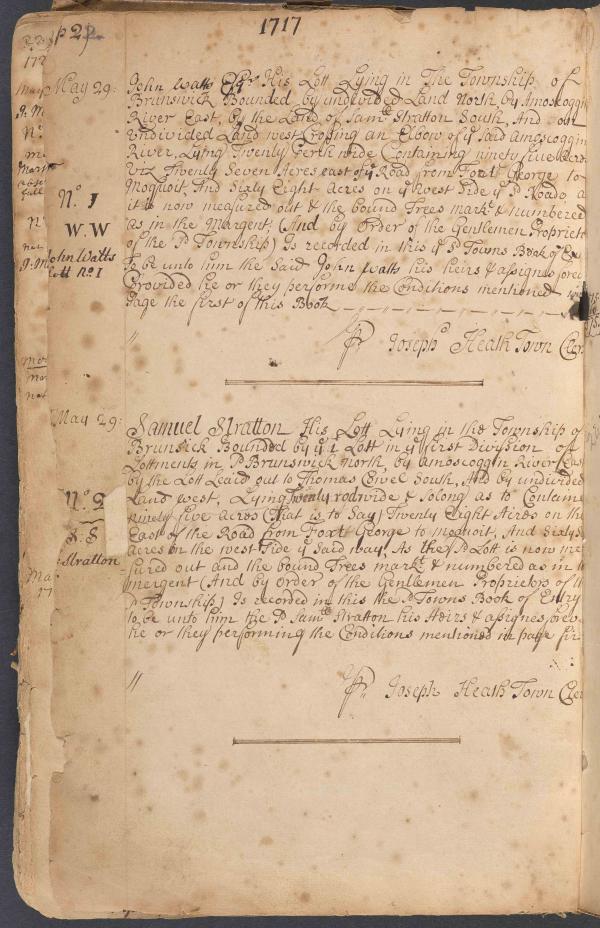 1717
p 22
May 29:
John Watts Esqr His Lott Lying in The Township of
Brunswick Bounded by undivided Land North by Amoscoggin
River East, by the Land of Samll Stratton South, And
undivided Land west Crossing an Elbow of ye said Amoscoggin
River, Lying Twenty Perch wide Containing ninety five Acres
viz Twenty Seven Acres east of ye Road from Fort George to
Moquoit, And Sixty Eight Acres on ye west Side ye Pd Roade, a
it is now measured out & the bound Trees markt & numbered
as in the Margent, (And by Order of the Gentlemen Propriete
of the Pd Township) Is recorded in this ye Pd Towns Book of En
To be unto him the Said John Watts his heirs & assignes forev
Provided he or they performe the Conditions mentioned
Page the first of this Book
No 1
W.W
John Watts
Lott No 1
Joseph Heath Town Cler
May 29:
Samuel Stratton His Lott Lying in the Township of
Brunsick Bounded by ye 1 Lott in ye first Division of
Lottments in Pd Brunswick North, by Amoscoggin River East
by the Lott Leaid out to Thomas South, And by undivided
Land west, Lying Twenty rod wide & So long as to Containe
ninety five acres (That is to Say) Twenty Eight Aires on the
East of the Road from Foxt George to moquoit, And Sixty
acres on the west Side ye Said way, As the Pd Lott is now me
sured out and the bound Trees markt & numbered as in
mergent (And by Order of the Gentlemen Proprietrs of
Pd Township) Is recorded in this the Pd Towns Book of Entry
to be unto him the Pd Samll Stratton his Heirs & assignes forev
he or they performing the Conditions mentioned in page fir
No 2
S. S
Stratton
Joseph Heath Town Cler